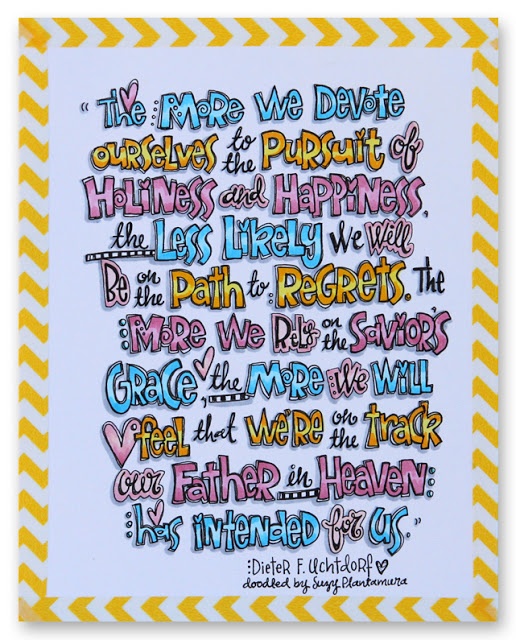 "The More We Devote
Ourselves to the Pursuit of
Holiness and Happiness,
the Less Likely We Will
Be on the Path to Regrets. The
More We Rely on the Savior's
Grace, the More We Will
feel that We're on the track
our Father in Heaven
has intended for us."
Dieter F. Uchtdorf
doodled by Suzy Plantamura